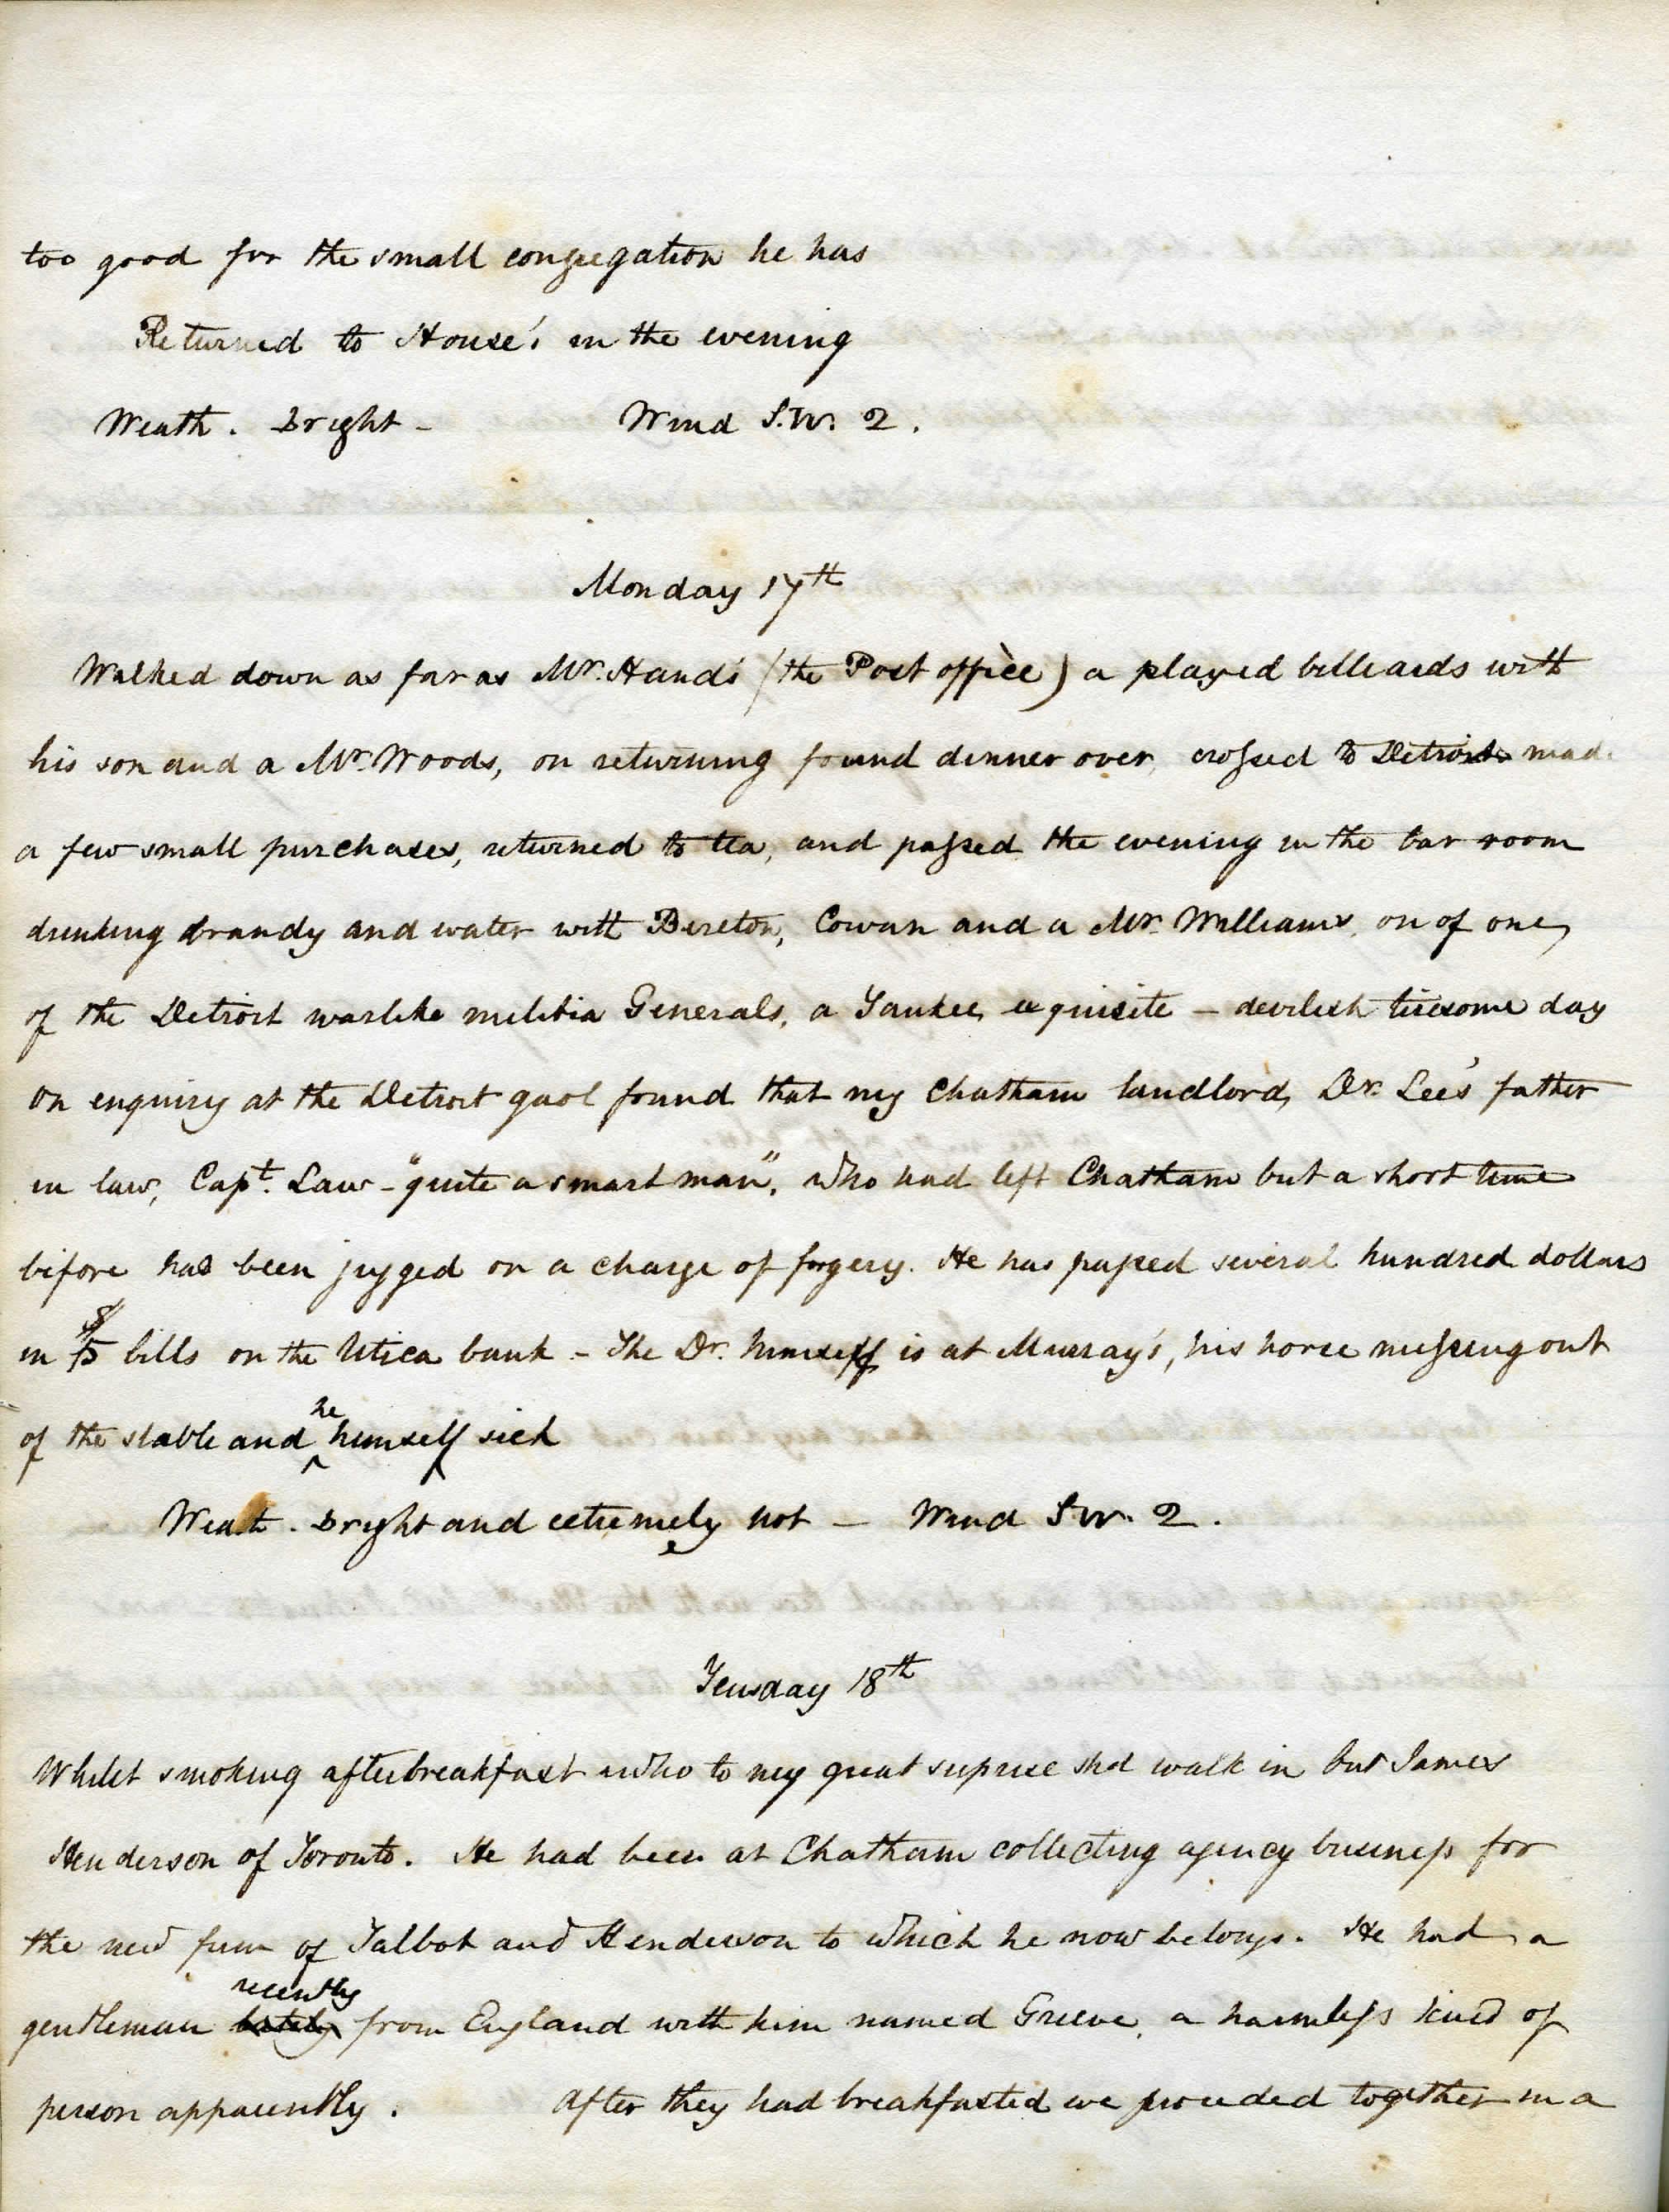 too good for the small congregation he has
Returned to House's in the evening
Weath. Bright - Wind S.W. 2.
Monday 17th
Walked down as far as Mr. Hand's (the Post office) a played billiards with
his son and a Mr. Woods, on returning found dinner over, crossed to Detroit mad
a few small purchases, returned to tea, and passed the evening in the bar room
drinking brandy and water with Bereton, Cowan and a Mr. Williams, on of one
of the Detroit warlike militia Generals, a Yankee exquisite - devilish tiresome day
on enquiry at the Detroit gaol found that my Chatham landlord, Dr. Lee's father
in law, Capt. Law - "quite a smart man", who had left Chatham but a short time
before had been jugged on a charge of forgery. He has passed several hundred dollars
in $5 bills on the Utica bank - The Dr. himself is at Murray's, his horse missing out
of the stable and he himself sick
Weath. Bright and extremely hot - Wind S.W. 2.
Teusday 18th
Whilst smoking after breakfast who to my great suprise shd walk in but James
Henderson of Toronto. He had been at Chatham collecting agency business for
the new firm of Talbot and Henderson to which he now belongs. He had a
gentleman lately recently from England with him named Greeve, a harmless kind of
person apparently. After they had breakfasted we proceded together in a